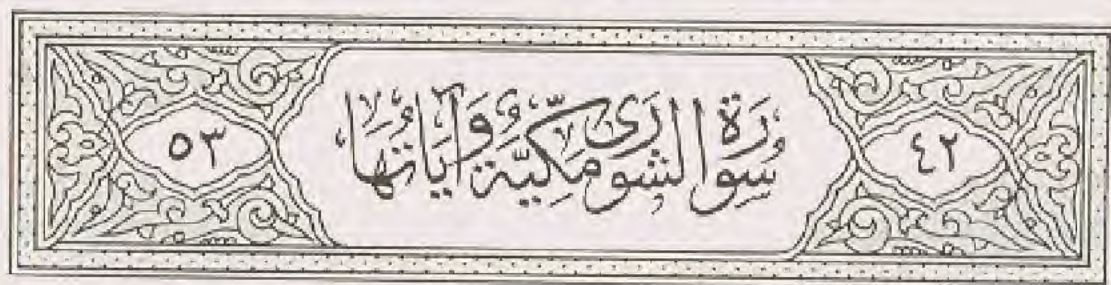 ٤٢
سُورَةُ الشُّورَىٰ مَكِّيَّةٌ وَآيَاتُهَا
٥٣